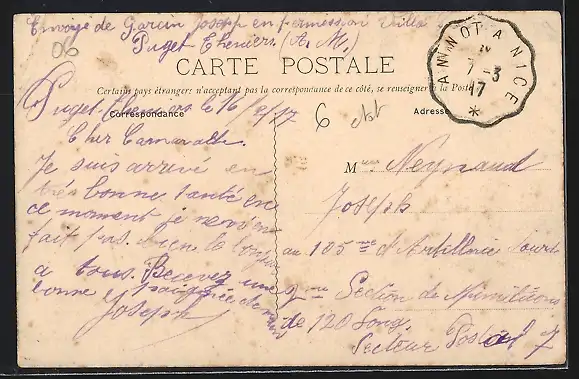 Envoye de Garcin Joseph en permession Ville
Puget Theniers (A. M.)
06
CARTE POSTALE
Certains pays étrangers n'acceptant pas la correspondance de ce côté, se renseigner à la Poste
Correspondance
Adresse
ANNOT A NICE
7 -3
17
Puget-Theniers le 16/2/17
6
Cher Camarade.
Je suis arrivé en
très bonne santé en
ce moment je
fait pas bien le
à tous. Recevez une
bonne poignée de main
Joseph
M Reynaud
Joseph
au 105me d'Artillerie Lourde
Section de Munitions
de 120 Long.
Secteur Postal 7